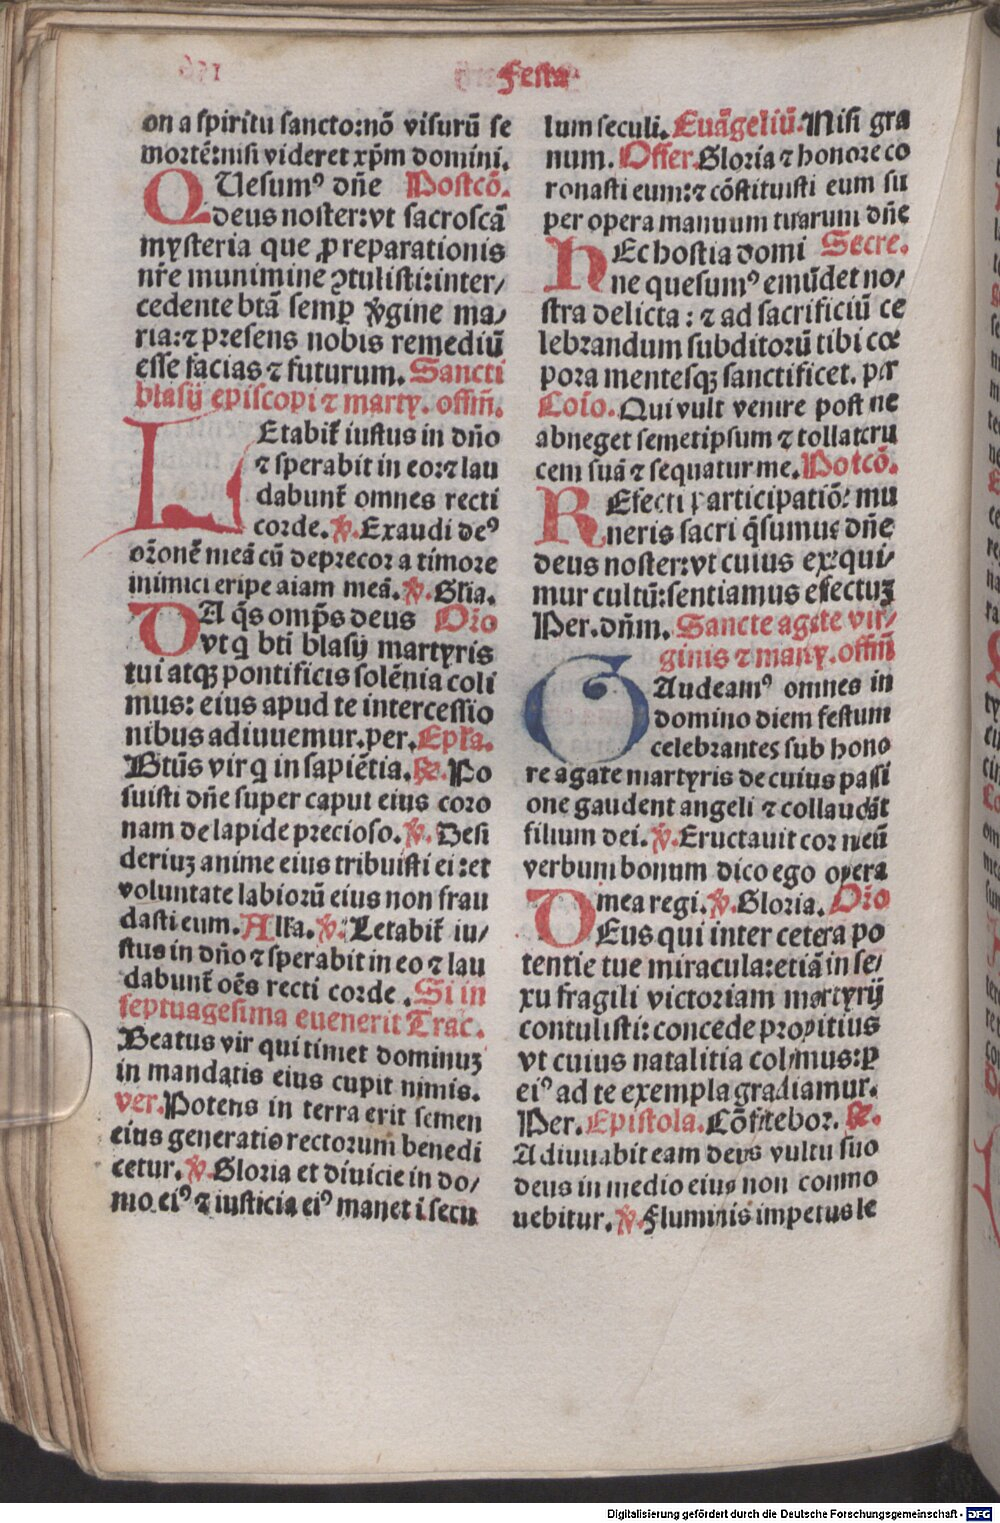 Festa
on a spiritu sancto:nō visurū se
mortē:nisi videret xp̄m domini.
QUesumꝰ dn̄e Postcō.
deus noster:vt sacroscā
mysteria que ꝓ reparationis
nr̄e munimine ꝯtulisti:inter/
cedente btā semꝑ v̓gine ma/
ria:⁊ presens nobis remediū
esse facias ⁊ futurum. Sancti
blasij episcopi ⁊ marty. offm̄.
LEtabit̃ iustus in dn̄o
⁊ sperabit in eo:⁊ lau
dabunt̃ omnes recti
corde. ℣. Exaudi deꝰ
orōnē meā cū deprecor a timore
inimici eripe aiam meā. ℣. Glia.
DA q̄s omp̄s deus Orō
vt q̇ bti blasij martyris
tui atqꝫ pontificis solēnia coli
mus: eius apud te intercessio
nibus adiuuemur.per. Epl̄a.
Btūs vir q̇ in sapiētia. ℟. Po
suisti dn̄e super caput eius coro
nam de lapide precioso. ℣. Desi
deriuꝫ anime eius tribuisti ei:et
voluntate labiorū eius non frau
dasti eum. All̄a. ℣. Letabit̃ iu/
stus in dn̄o ⁊ sperabit in eo ⁊ lau
dabunt̃ oēs recti corde. Si in
septuagesima euenerit Trac.
Beatus vir qui timet dominuꝫ
in mandatis eius cupit nimis.
ver. Potens in terra erit semen
eius generatio rectorum benedi
cetur. ℣. Gloria et diuicie in do/
mo eiꝰ ⁊ iusticia eiꝰ manet i secu
lum seculi. Euāgeliū. Nisi gra
num. Offer. Gloria ⁊ honore co
ronasti eum:⁊ cōstituisti eum su
per opera manuum tuarum dn̄e
HEc hostia domi Secre.
ne quesumꝰ emūdet no/
stra delicta: ⁊ ad sacrificiū ce
lebrandum subditorū tibi cor
pora mentesqꝫ sanctificet. per
Coīo. Qui vult venire post me
abneget semetipsum ⁊ tollat cru
cem suā ⁊ sequatur me. Potcō.
REfecti participatiōe mu
neris sacri q̄sumus dn̄e
deus noster:vt cuius exequi/
mur cultū:sentiamus effectuꝫ
Per.dn̄m. Sancte agate vir/
ginis ⁊ marty. offm̄
GAudeamꝰ omnes in
domino diem festum
celebrantes sub hono
re agate martyris de cuius passi
one gaudent angeli ⁊ collaudāt
filium dei. ℣. Eructauit cor meū
verbum bonum dico ego opera
mea regi. ℣. Gloria. Orō
DEus qui inter cetera po
tentie tue miracula:etiā in se/
xu fragili victoriam martyrij
contulisti: concede propitius
vt cuius natalitia colimus:ꝑ
eiꝰ ad te exempla gradiamur.
Per. Epistola. Cōfitebor. ℟.
Adiuuabit eam deus vultu suo
deus in medio eius non commo
uebitur. ℣. Fluminis impetus le
Digitalisierung gefördert durch die Deutsche Forschungsgemeinschaft - DFG